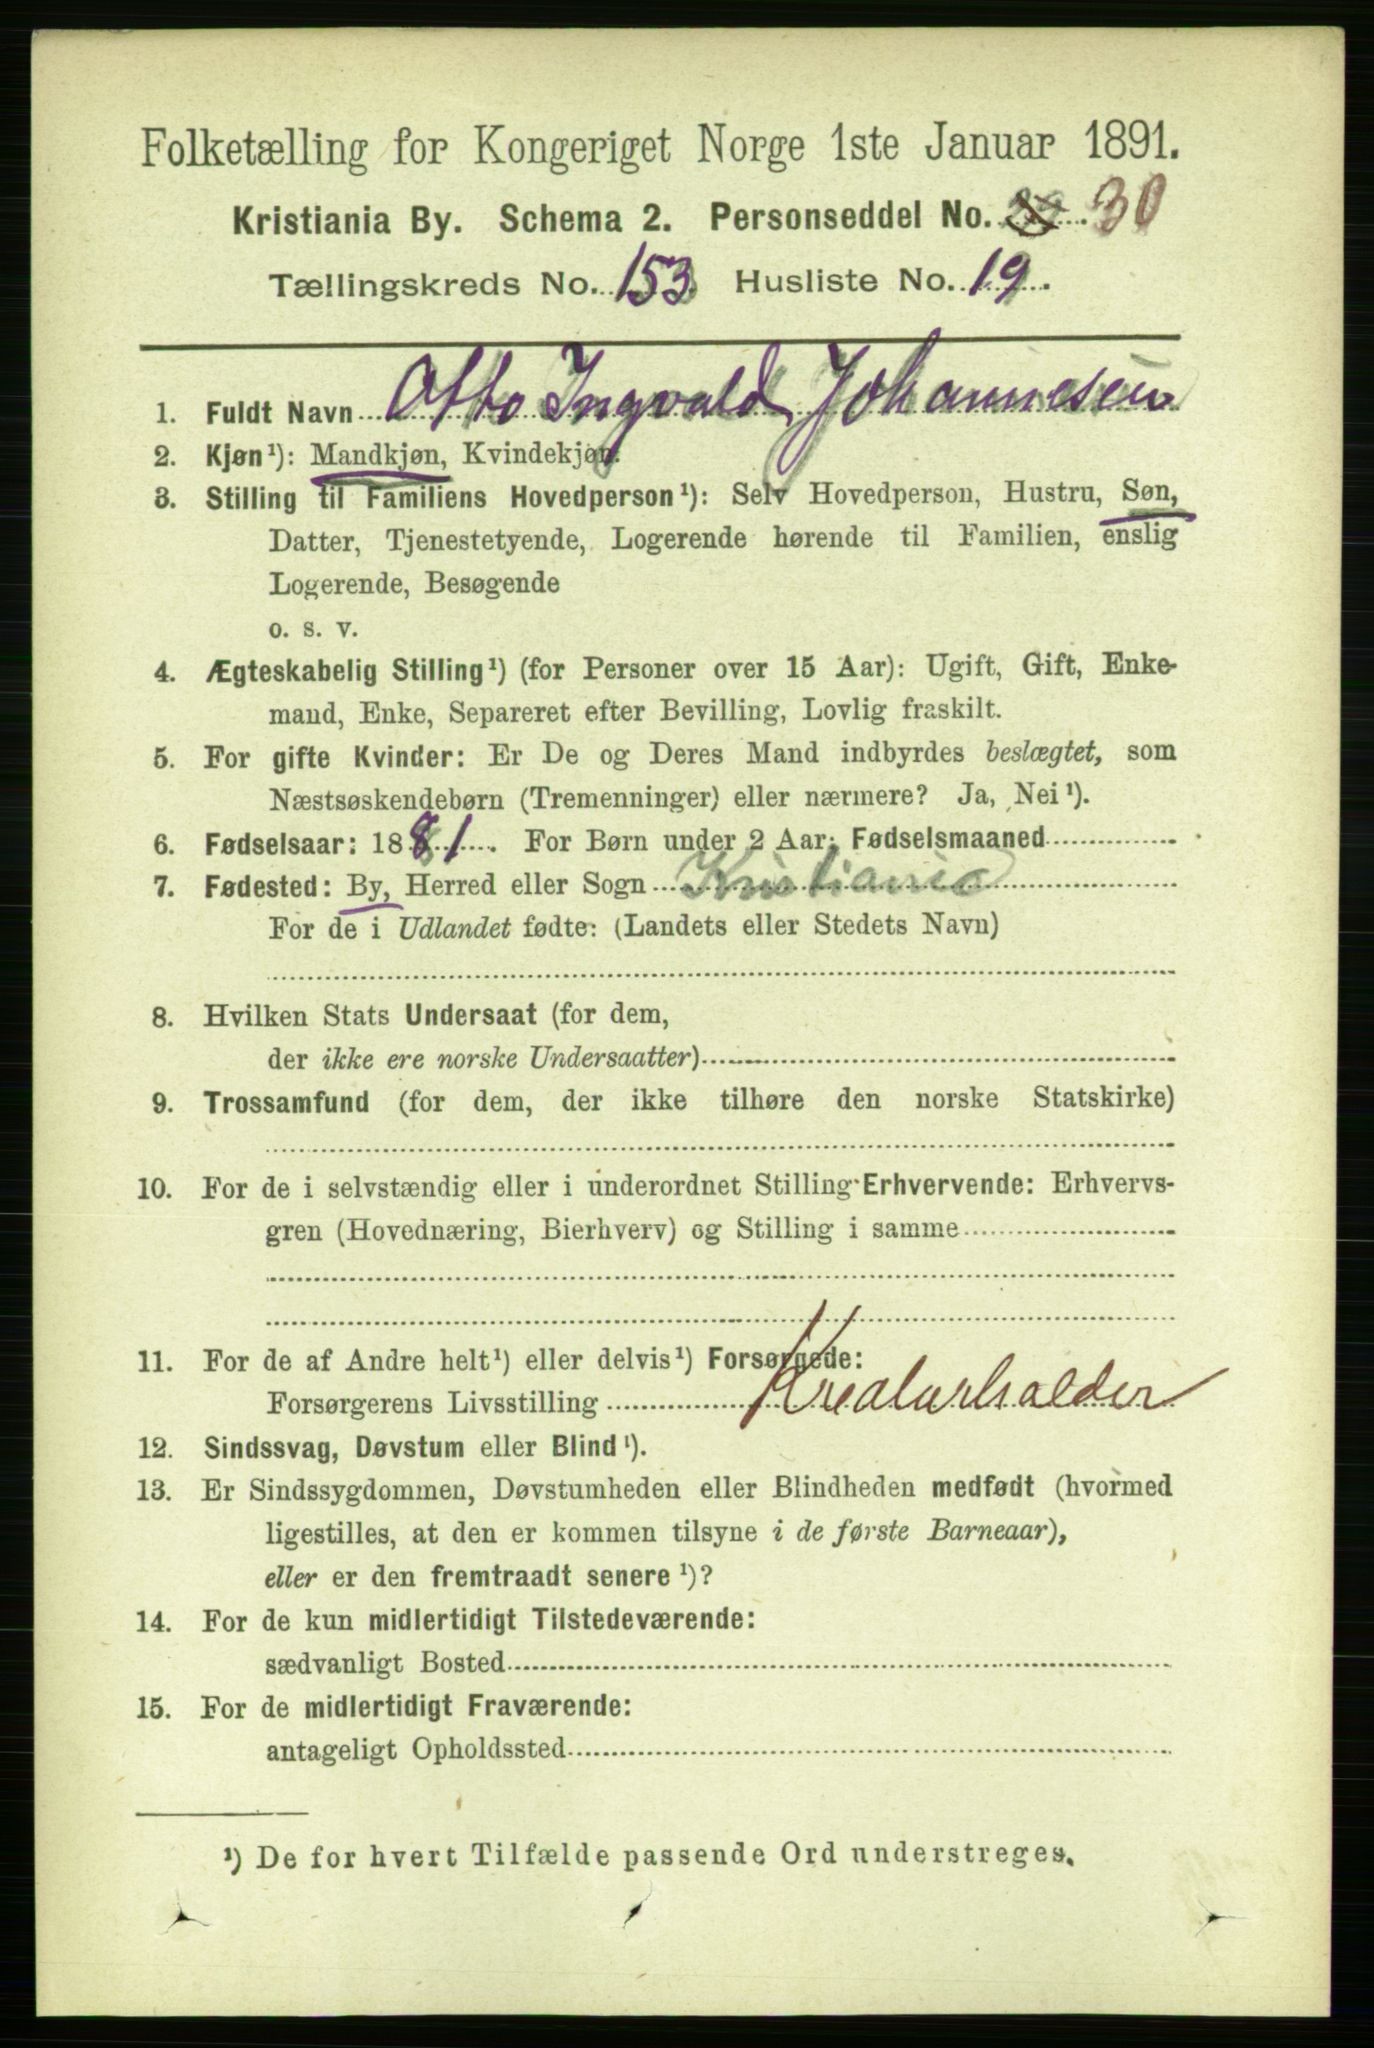 Folketælling for Kongeriget Norge 1ste Januar 1891.
Kristiania By. Schema 2. Personseddel No. 30
Tællingskreds No. 153 Husliste No. 19.
1. Fuldt Navn Otto Ingvald Johannesen
2. Kjøn¹): Mandkjøn, Kvindekjøn.
3. Stilling til Familiens Hovedperson¹): Selv Hovedperson, Hustru, Søn,
Datter, Tjenestetyende, Logerende hørende til Familien, enslig
Logerende, Besøgende
o. s. v.
4. Ægteskabelig Stilling¹) (for Personer over 15 Aar): Ugift, Gift, Enke-
mand, Enke, Separeret efter Bevilling, Lovlig fraskilt.
5. For gifte Kvinder: Er De og Deres Mand indbyrdes beslægtet, som
Næstsøskendebørn (Tremenninger) eller nærmere? Ja, Nei¹).
6. Fødselsaar: 1881. For Børn under 2 Aar: Fødselsmaaned
7. Fødested: By, Herred eller Sogn Kristiania
For de i Udlandet fødte: (Landets eller Stedets Navn)
8. Hvilken Stats Undersaat (for dem,
der ikke ere norske Undersaatter)
9. Trossamfund (for dem, der ikke tilhøre den norske Statskirke)
10. For de i selvstændig eller i underordnet Stilling Erhvervende: Erhvervs-
gren (Hovednæring, Bierhverv) og Stilling i samme
11. For de af Andre helt¹) eller delvis¹) Forsørgede:
Forsørgerens Livsstilling Kreaturhalder
12. Sindssvag, Døvstum eller Blind¹).
13. Er Sindssygdommen, Døvstumheden eller Blindheden medfødt (hvormed
ligestilles, at den er kommen tilsyne i de første Barneaar),
eller er den fremtraadt senere¹)?
14. For de kun midlertidigt Tilstedeværende:
sædvanligt Bosted
15. For de midlertidigt Fraværende:
antageligt Opholdssted
¹) De for hvert Tilfælde passende Ord understreges.